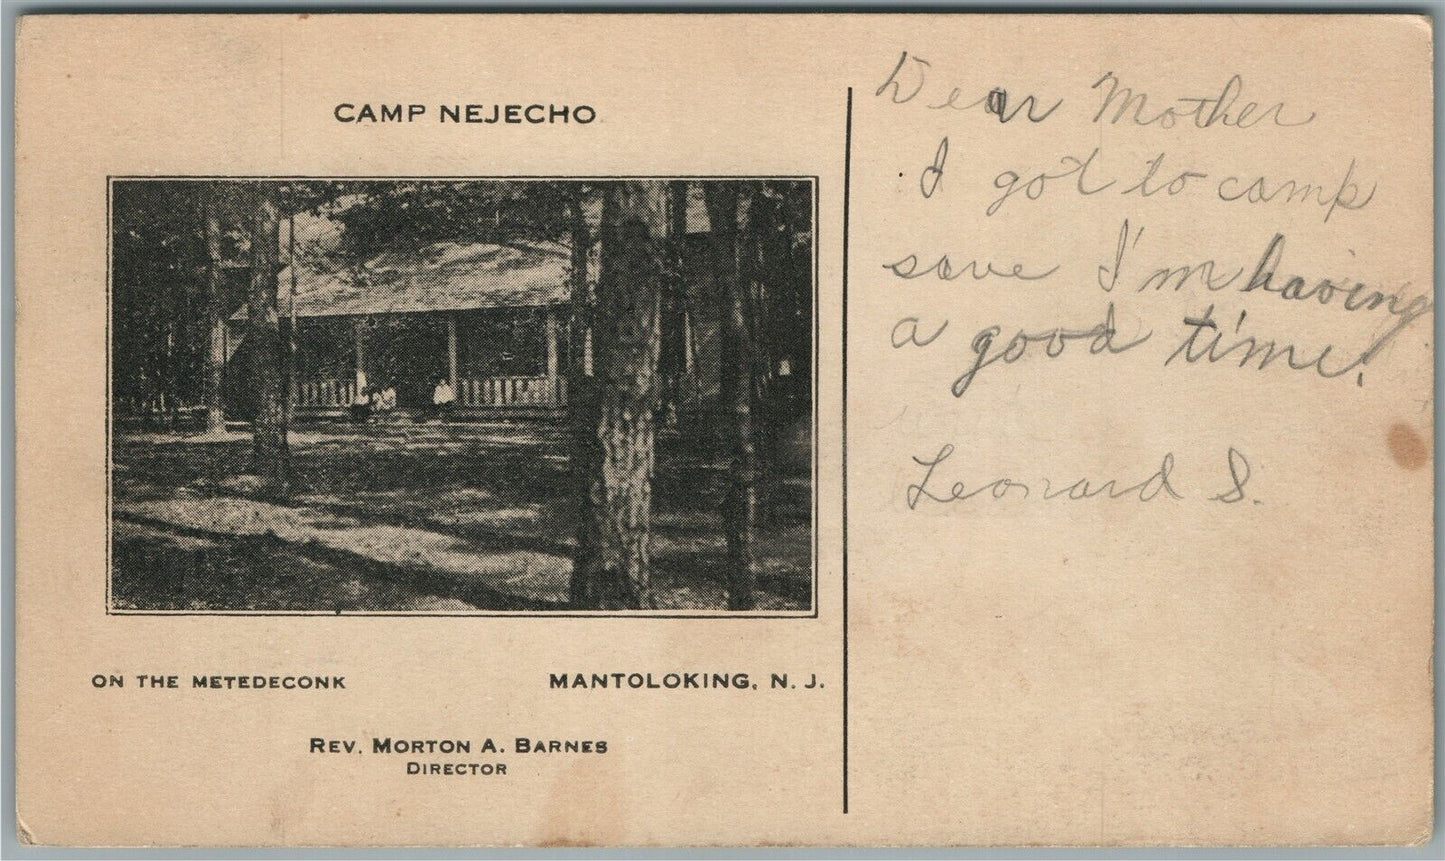 CAMP NEJECHO
ON THE METEDECONK
MANTOLOKING, N. J.
REV. MORTON A. BARNES
DIRECTOR
Dear Mother
I got to camp
save I'm having
a good time.
Leonard S.